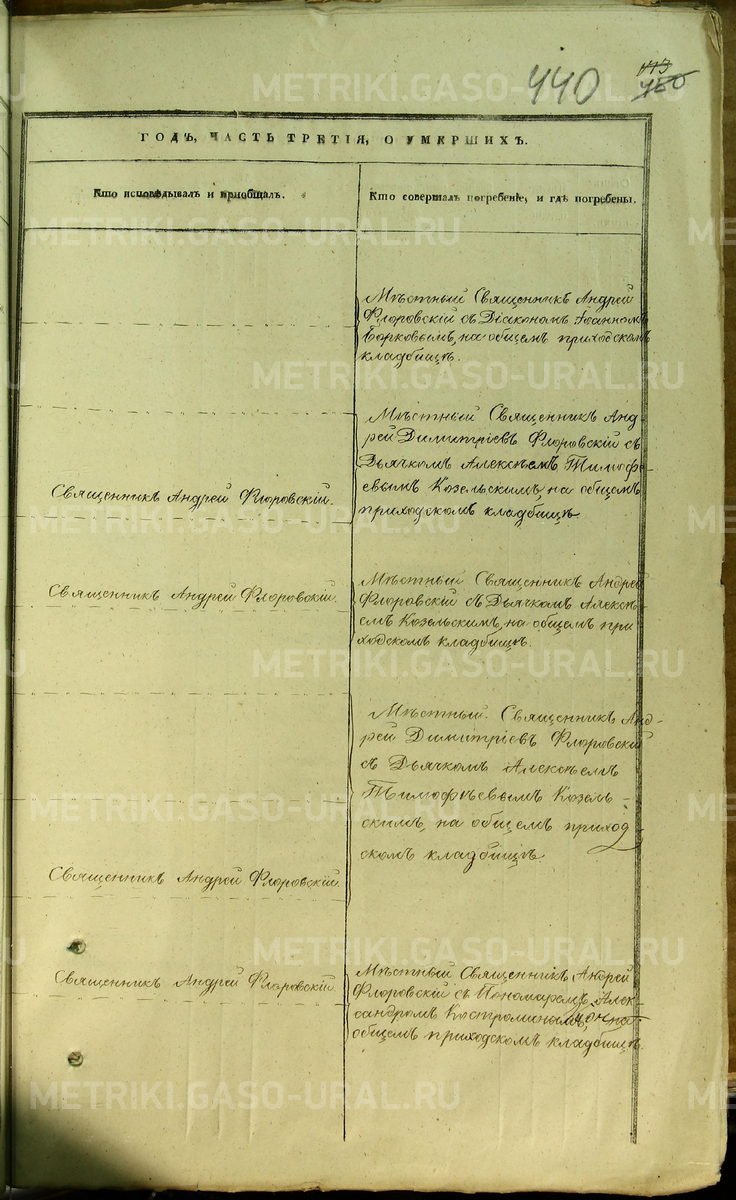 440
113
450
ГОДЪ, ЧАСТЬ ТРЕТІЯ, О УМЕРШИХЪ.
Кто исповѣдывалъ и пріобщалъ.
Кто совершалъ погребеніе, и гдѣ погребены.
Мѣстный Священникъ Андрей
Флоровскій съ Діакономъ Іоанномъ
Борковымъ, на общемъ приходскомъ
кладбищѣ.
Мѣстный Священникъ Анд-
рей Димитріевъ Флоровскій съ
Дьячкомъ Алексѣемъ Тимофѣ-
евымъ Козельскимъ, на общемъ
приходскомъ кладбищѣ
Священникъ Андрей Флоровскій.
Священникъ Андрей Флоровскій.
Мѣстный Священникъ Андрей
Флоровскій съ Дьячкомъ Алексѣ-
емъ Козельскимъ, на общемъ при
ходскомъ кладбищѣ.
Мѣстный Священникъ Анд-
рей Димитріевъ Флоровскій
съ Дьячкомъ Алексѣемъ
Тимофѣевымъ Козель-
скимъ, на общемъ приход-
скомъ кладбищѣ
Священникъ Андрей Флоровскій.
Священникъ Андрей Флоровскій
Мѣстный Священникъ Андрей
Флоровскій съ Пономаремъ Алек-
сандромъ Костроминымъ, на
общемъ приходскомъ кладбищѣ.
METRIKI.GASO-URAL.RU